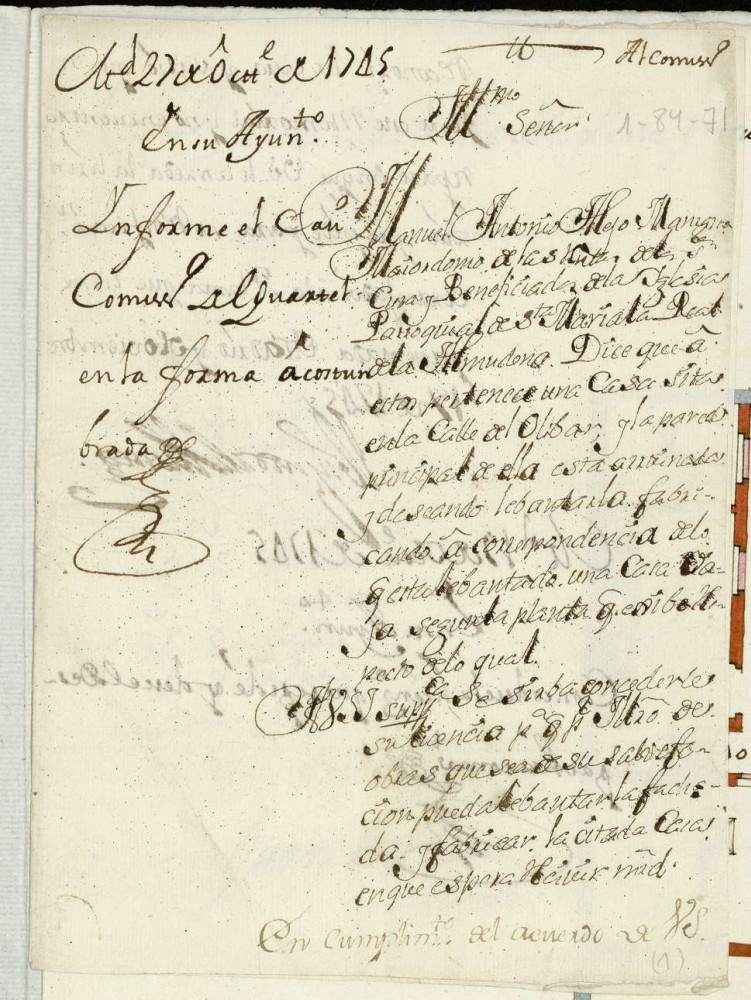 Md 27 de Octe de 1745
En su Ayunto.
Informe el Cauo
Comisso al Quartel
en la forma acostum
brada
tt
Al Comisso
Illmo
Señor
1-84-71
Manuel Antonio Alejo
Maiordomo de las Rentas de los Srs
Cura y Beneficiados de la Iglesia
Parroquial de Sta Maria la Real
de la Almudena. Dice que â
estos pertenece una Casa sita
en la Calle del Olibar, y la pared
principal de ella está arruinada
y deseando lebantarla fabri-
cando â correspondencia de lo
q esta lebantado una Casa
segun la planta q exibe
pecto de lo qual.
A V.S.I suppca Se sirba concederle
su licencia pa q pr Mro de
obras que sea de su satisfa-
cion pueda lebantar la facha-
da y fabricar la citada Casa
en que espera Recivir mrd.
En cumplimto. del acuerdo de VS.
(1)